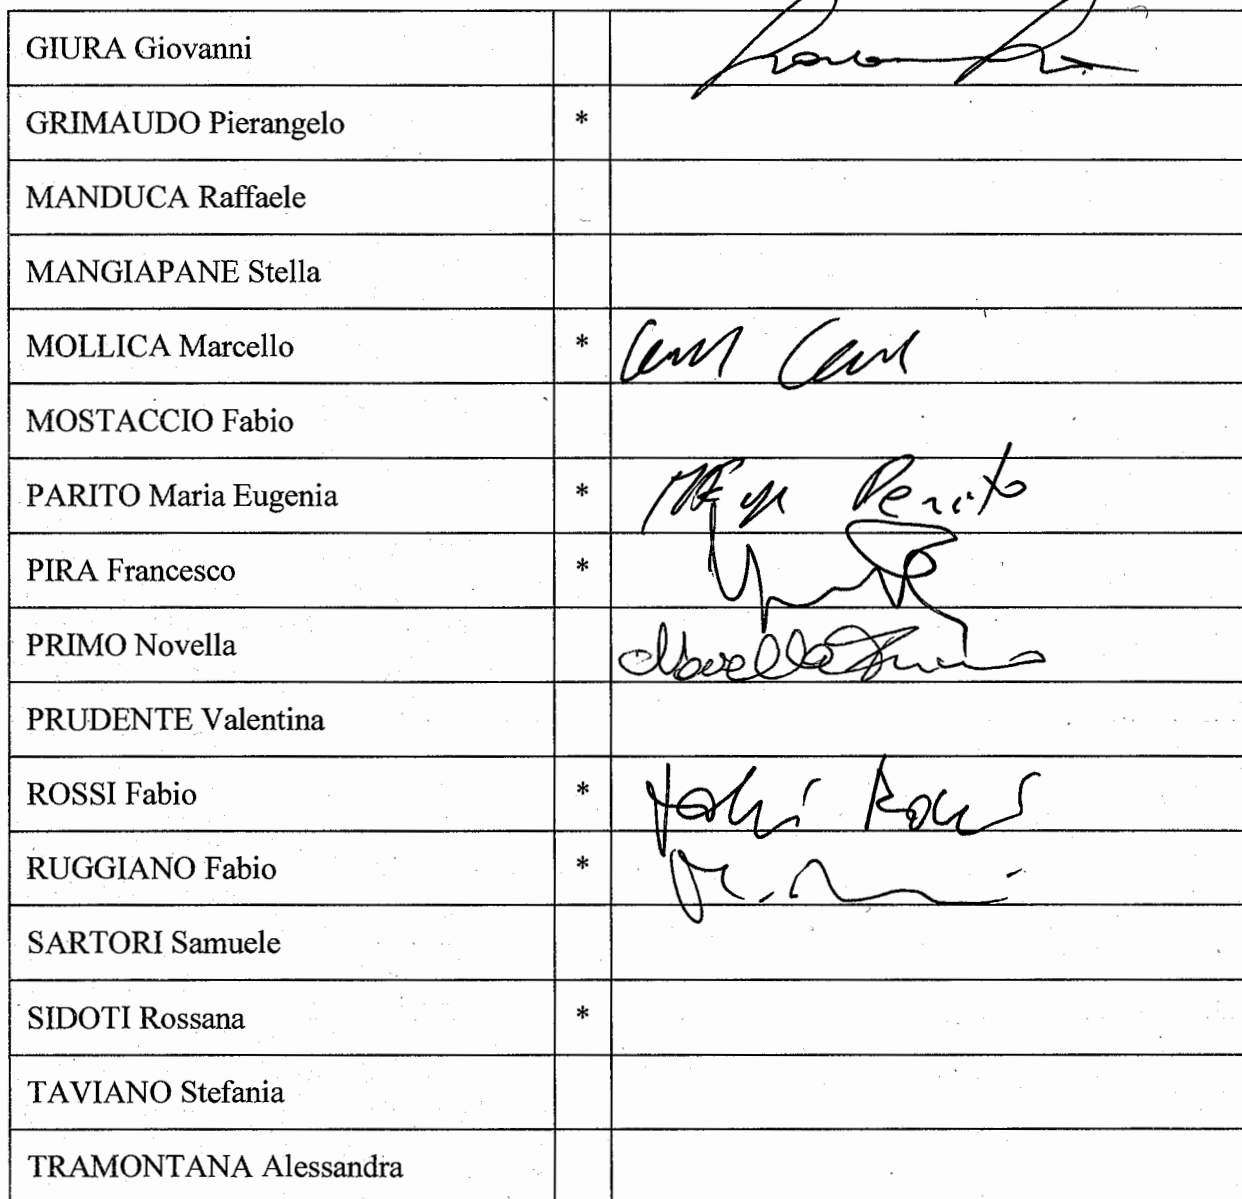 GIURA Giovanni
GRIMAUDO Pierangelo *
MANDUCA Raffaele
MANGIAPANE Stella
MOLLICA Marcello *
MOSTACCIO Fabio
PARITO Maria Eugenia * Parito
PIRA Francesco *
PRIMO Novella Novella Primo
PRUDENTE Valentina
ROSSI Fabio * Fabio Rossi
RUGGIANO Fabio *
SARTORI Samuele
SIDOTI Rossana *
TAVIANO Stefania
TRAMONTANA Alessandra